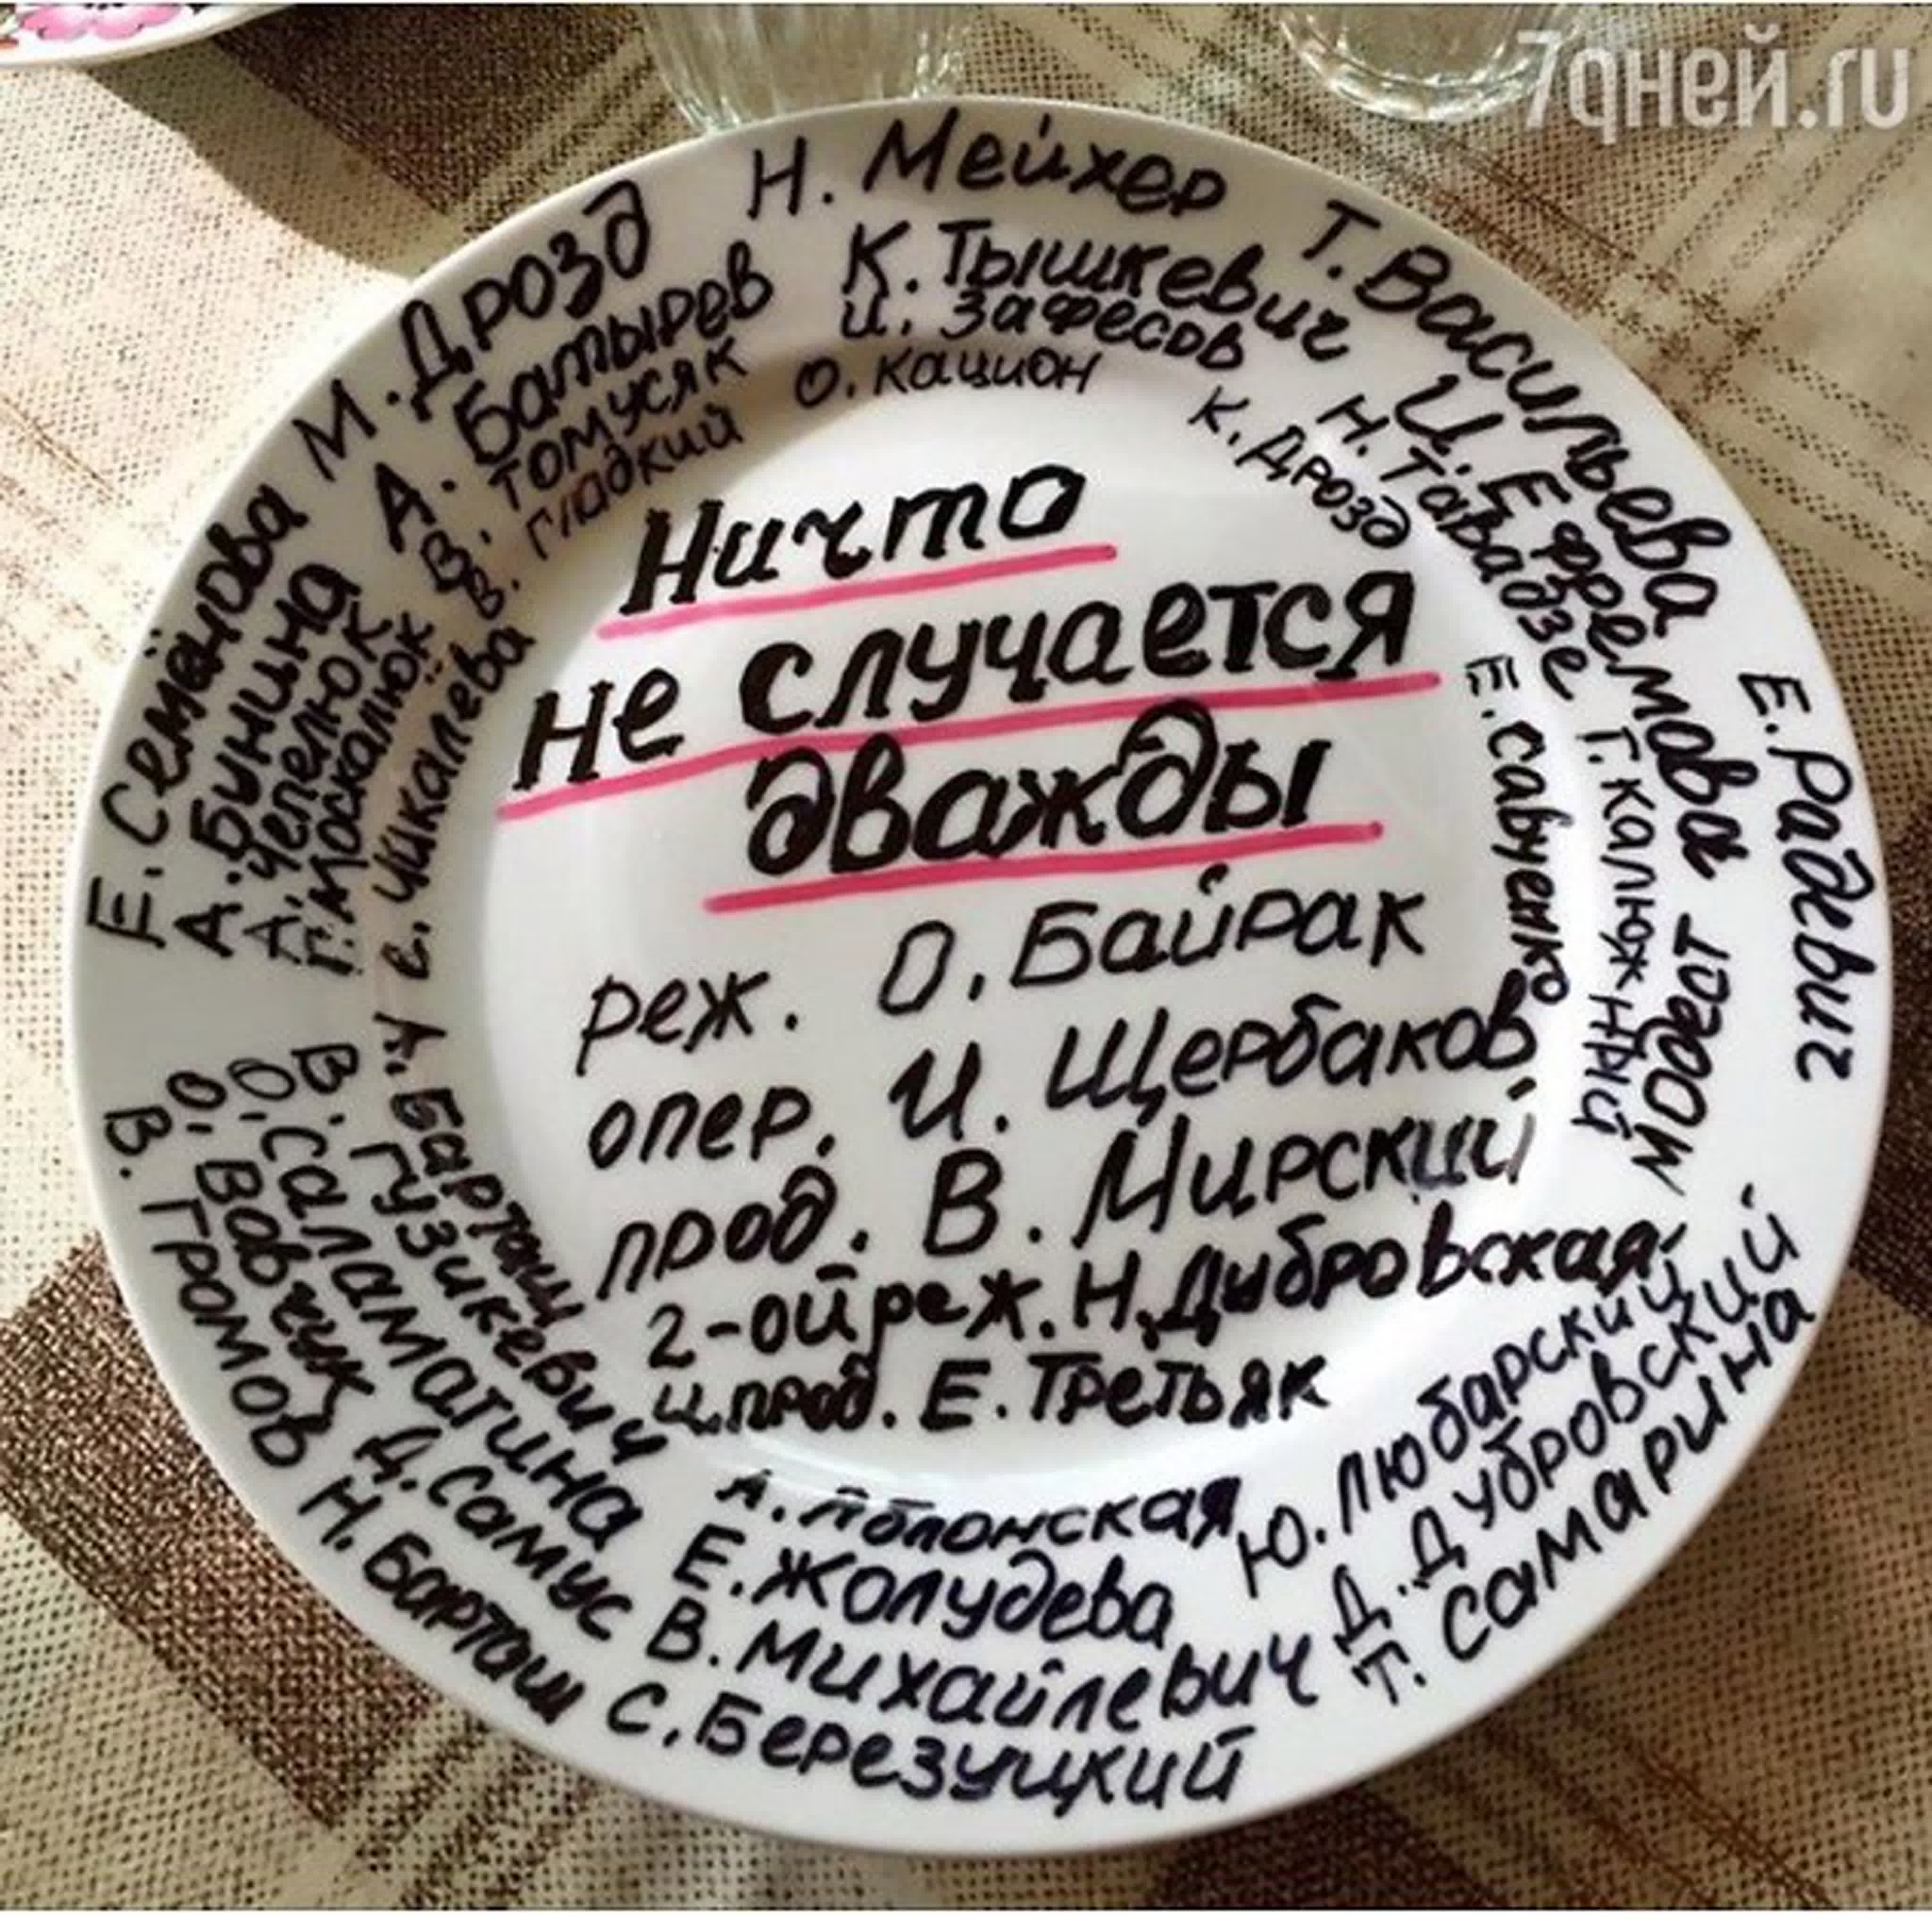 7дней.ru
Ничто
не случается
дважды
реж. О. Байрак
опер. И. Щербаков
прод. В. Мирский
2-ой реж. Н. Дубровская
и.прод. Е. Третьяк
Н. Мейхер
Т. Васильева
Е. Радевич
К. Тышкевич
И. Ефремова
Модест
И. Зафесов
Н. Тавадзе
Г. Калюжный
О. Кацион
К. Дрозд
Е. Савченко
Ю. Любарский
Д. Дубровский
Т. Самарина
А. Яблонская
Е. Жолудева
В. Михайлевич
С. Березуцкий
А. Барташ
В. Гузикевич
О. Саламатина
Д. Самус
О. Вовчук
Н. Барташ
В. Громов
Е. Семёнова
А. Бунина
А. Чепелюк
Г. Москалюк
Е. Чикалёва
М. Дрозд
А. Батырев
В. Томусяк
В. Гладкий